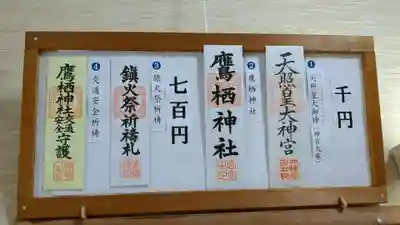 千円
❶天照皇大御神(神宮大麻)
天照皇大神宮
❷鷹栖神社
鷹栖神社
七百円
❸鎮火祭祈祷
鎮火祭祈祷札
❹交通安全祈祷
鷹栖神社交通安全守護